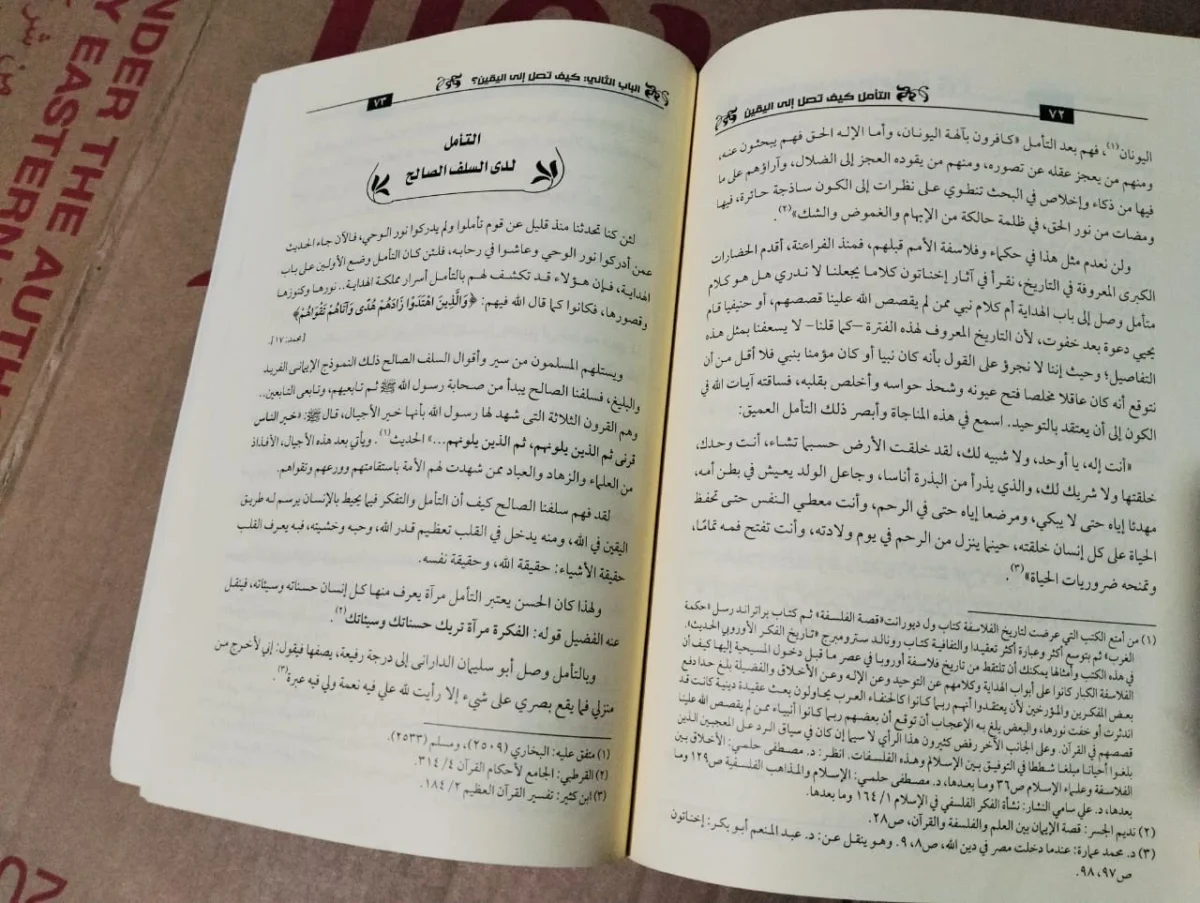 NDER THE AUTHO
Y EASTERN
٧٢
التأمل كيف تصل إلى اليقين
اليونان(١)، فهم بعد التأمل «كافرون بآلهة اليونان، وأما الإله الحق فهم يبحثون عنه،
ومنهم من يعجز عقله عن تصوره، ومنهم من يقوده العجز إلى الضلال، وآراؤهم على ما
فيها من ذكاء وإخلاص في البحث تنطوي على نظرات إلى الكون ساذجة حائرة، فيها
ومضات من نور الحق، في ظلمة حالكة من الإبهام والغموض والشك»(٢).
ولن نعدم مثل هذا في حكماء وفلاسفة الأمم قبلهم، فمنذ الفراعنة، أقدم الحضارات
الكبرى المعروفة في التاريخ، نقرأ في آثار إخناتون كلاما يجعلنا لا ندري هل هو كلام
متأمل وصل إلى باب الهداية أم كلام نبي ممن لم يقصص الله علينا قصصهم، أو حنيفيا قام
يحيي دعوة بعد خفوت، لأن التاريخ المعروف لهذه الفترة -كما قلنا- لا يسعفنا بمثل هذه
التفاصيل؛ وحيث إننا لا نجرؤ على القول بأنه كان نبيا أو كان مؤمنا بنبي فلا أقل من أن
نتوقع أنه كان عاقلا مخلصا فتح عيونه وشحذ حواسه وأخلص بقلبه، فساقته آيات الله في
الكون إلى أن يعتقد بالتوحيد.. اسمع في هذه المناجاة وأبصر ذلك التأمل العميق:
«أنت إله، يا أوحد، ولا شبيه لك، لقد خلقت الأرض حسبما تشاء، أنت وحدك،
خلقتها ولا شريك لك، والذي يذرأ من البذرة أناسا، وجاعل الولد يعيش في بطن أمه،
مهدئا إياه حتى لا يبكي، ومرضعا إياه حتى في الرحم، وأنت معطي النفس حتى تحفظ
الحياة على كل إنسان خلقته، حينما ينزل من الرحم في يوم ولادته، وأنت تفتح فمه تمامًا،
وتمنحه ضروريات الحياة»(٣).
(١) من أمتع الكتب التي عرضت لتاريخ الفلاسفة كتاب ول ديورانت «قصة الفلسفة» ثم كتاب براتراند رسل «حكمة
الغرب» ثم بتوسع أكثر وعبارة أكثر تعقيدا والتفافية كتاب رونالد سترومبرج «تاريخ الفكر الأوروبي الحديث».
في هذه الكتب وأمثالها يمكنك أن تلتقط من تاريخ فلاسفة أوروبا في عصر ما قبل دخول المسيحية إليها كيف أن
الفلاسفة الكبار كانوا على أبواب الهداية وكلامهم عن التوحيد وعن الإله وعن الأخلاق والفضيلة بلغ حدا دفع
بعض المفكرين والمؤرخين لأن يعتقدوا أنهم ربما كانوا كالحنفاء العرب يحاولون بعث عقيدة دينية كانت قد
اندثرت أو خفت نورها، والبعض يلغ به الإعجاب أن توقع أن بعضهم ربما كانوا أنبياء ممن لم يقصص الله علينا
قصصهم في القرآن. وعلى الجانب الآخر رفض كثيرون هذا الرأي لا سيما إن كان في سياق الرد على المعجبين الذين
بلغوا أحيانا مبلغا شططا في التوفيق بين الإسلام وهذه الفلسفات. انظر: د. مصطفى حلمي: الأخلاق بين
الفلاسفة وعلماء الإسلام ص٣٦ وما بعدها، د. مصطفى حلمي: الإسلام والمذاهب الفلسفية ص١٢٩ وما
بعدها، د. علي سامي النشار: نشأة الفكر الفلسفي في الإسلام ١/ ١٦٤ وما بعدها.
(٢) نديم الجسر: قصة الإيمان بين العلم والفلسفة والقرآن، ص٢٨.
(٣) د. محمد عمارة: عندما دخلت مصر في دين الله، ص٨، ٩. وهو ينقل عن: د. عبد المنعم أبو بكر: إخناتون
ص٩٧، ٩٨.
الباب الثاني: كيف تصل إلى اليقين؟
٧٣
التأمل
لدى السلف الصالح
لئن كنا تحدثنا منذ قليل عن قوم تأملوا ولم يدركوا نور الوحي، فالآن جاء الحديث
عمن أدركوا نور الوحي وعاشوا في رحابه، فلئن كان التأمل وضع الأولين على باب
الهداية، فإن هؤلاء قد تكشف لهم بالتأمل أسرار مملكة الهداية.. نورها وكنوزها
وقصورها، فكانوا كما قال الله فيهم: ﴿وَالَّذِينَ اهْتَدَوْا زَادَهُمْ هُدًى وَآتَاهُمْ تَقْوَاهُمْ﴾
[محمد: ١٧].
ويستلهم المسلمون من سير وأقوال السلف الصالح ذلك النموذج الإيماني الفريد
والبليغ، فسلفنا الصالح يبدأ من صحابة رسول الله ﷺ ثم تابعيهم، وتابعى التابعين..
وهم القرون الثلاثة التى شهد لها رسول الله بأنها خير الأجيال، قال ﷺ: «خير الناس
قرنى ثم الذين يلونهم، ثم الذين يلونهم...» الحديث(١). ويأتي بعد هذه الأجيال، الأفذاذ
من العلماء والزهاد والعباد ممن شهدت لهم الأمة باستقامتهم وورعهم وتقواهم.
لقد فهم سلفنا الصالح كيف أن التأمل والتفكر فيما يحيط بالإنسان يرسم له طريق
اليقين في الله، ومنه يدخل في القلب تعظيم قدر الله، وحبه وخشيته، فبه يعرف القلب
حقيقة الأشياء: حقيقة الله، وحقيقة نفسه.
ولهذا كان الحسن يعتبر التأمل مرآة يعرف منها كل إنسان حسناته وسيئاته، فينقل
عنه الفضيل قوله: الفكرة مرآة تريك حسناتك وسيئاتك(٢).
وبالتأمل وصل أبو سليمان الدارانى إلى درجة رفيعة، يصفها فيقول: إني لأخرج من
منزلي فما يقع بصري على شيء إلا رأيت لله علي فيه نعمة ولي فيه عبرة(٣).
(١) متفق عليه: البخاري (٢٥٠٩)، ومسلم (٢٥٣٣).
(٢) القرطبي: الجامع لأحكام القرآن ٤/ ٣١٤.
(٣) ابن كثير: تفسير القرآن العظيم ٢/ ١٨٤.